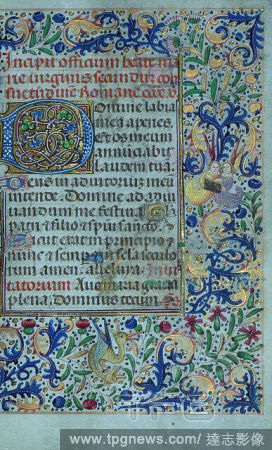 Incipit officium beate ma
rie virginis secundum con
suetudinē Romane cur̄
Domine labia
mea aperies
Et os meum
annuciabit
laudem tua
Deus in adiutoriū meū
intende. Domine ad adiu
uandum me festina
patri et filio et spiu sancto.
Sicut erat in principio
nunc et semper in secla seculo
rum amen. alleluya. Inui
tatorium Aue maria gracia
plena. Dominus tecum.
www.tpgnews.com/ 達志影像